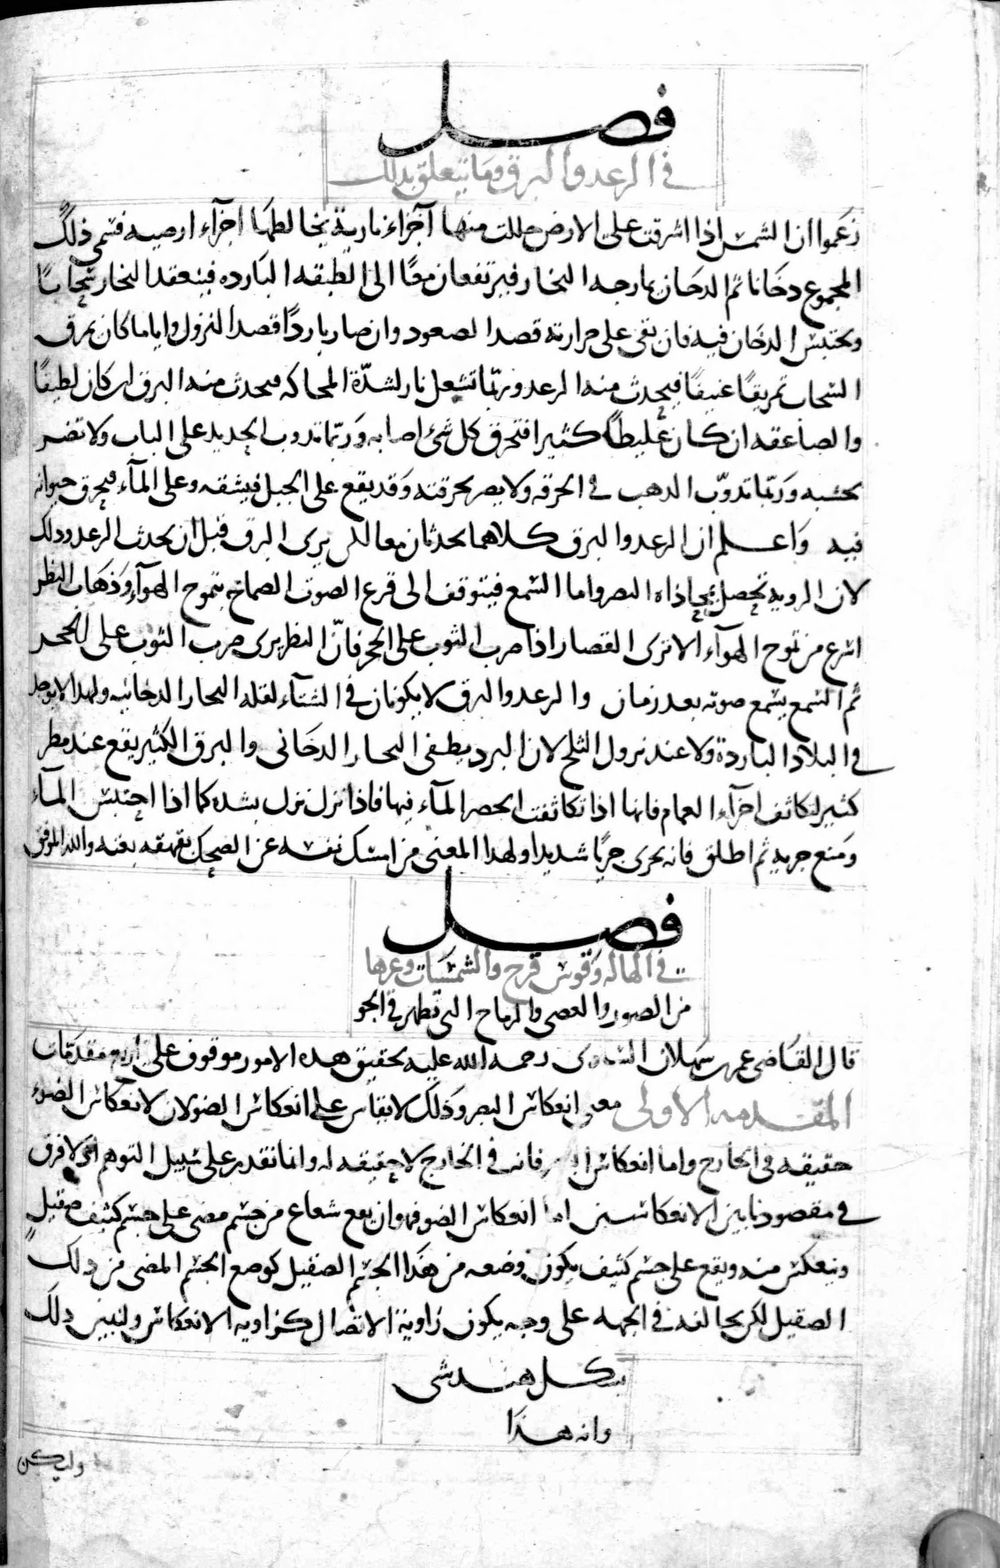 فصل
في الرعد والبرق وما يتعلق بذلك
زعموا ان الشمس اذا اشرقت على الارض حللت منها آجزاء نارية يخالطها اجزاء ارضيه فتسمى ذلك
المجموع دخانا ثم الدخان يمازجه البخار فيرتفعان معًا الى الطبقه البارده فينعقد البخار سحابًا
ويحتبس الدخان فيه فان بقى على حرارته قصد الصعود وان صار باردًا قصد النزول واياما كان يمزق
السحاب تمزيقًا عنيفًا فيحدث منه الرعد وربما تشعل نار لشدّة المحاكه فيحدث منه البرق ان كان لطيفًا
والصاعقه ان كان غليظًا كثيرا فتحرق كل شئ اصابه وربما تذوب الحديد على الباب ولا تضر
بخشبه وربما تذوّب الذهب في الخرقه ولا يضر بخرقته وقد يقع على الجبل فيشقه وعلى المآء فيحرق حيوانه
فيه واعلم ان الرعد والبرق كلاهما يحدثان معا لكن يرى البرق قبل ان يحدث الرعد وذلك
لان الروية تحصل بمحاذاه البصر واما السمع فيتوقف الى قرع الصوت الصماخ بتموج الهوآء وذهاب النظر
اسرع من تموج الهوآء الا ترى القصار اذا ضرب الثوب على الحجر فانّ النظر يرى ضرب الثوب على الحجر
ثم السمع يسمع صوته بعد زمان والرعد والبرق لا يكونان في الشتآء لقله البخار الدخانيه ولهذا لا يوجد
في البلاد الباردة ولا عند نزول الثلج لان البرد يطفى البخار الدخانى والبرق الكثير يقع عند مطر
كثير لتكاثف اجزآء الغمام فانها اذا تكاثفت انحصر المآء فيها فاذا نزل نزل بشده كما اذا احتبس المآء
ومنع جريه ثم اطلق فانه يجرى جريًا شديدا ولهذا المعنى من امسك نفسه عن الضحك يقهقه بغته والله الموفق
فصل
في الهاله وقوس قزح والشمسيات وغيرها
من الصور والعصى والرماح التى تظهر في الجو
قال القاضى عمر بن سهلان الساوى رحمه الله عليه تحقيق هذه الامور موقوف على اربع مقدمات
المقدمه الاولى معنى انعكاس البصر وذلك لا يقاس على انعكاس الضو لان لانعكاس الضوء
حقيقه في الخارج واما انعكاس البصر فانه في الخارج لا حقيقه له وانما تقدير على سبيل التوهم اذ لا فرق
في مقصودنا بين الانعكاسين اما انعكاس الضو فهو ان يقع شعاع من جسم مضى على جسم كثيف صقيل
وينعكس منه ويقع على جسم كثيف يكون وضعه من هذا الجسم الصقيل كوضع الجسم المضى من ذلك
الصقيل لكن يخالفه في الجهه على وجه يكون زاوية الاتصال كزاويه الانعكاس ولنبين ذلك
بشكل هندسى
وانه هذا
وليكن